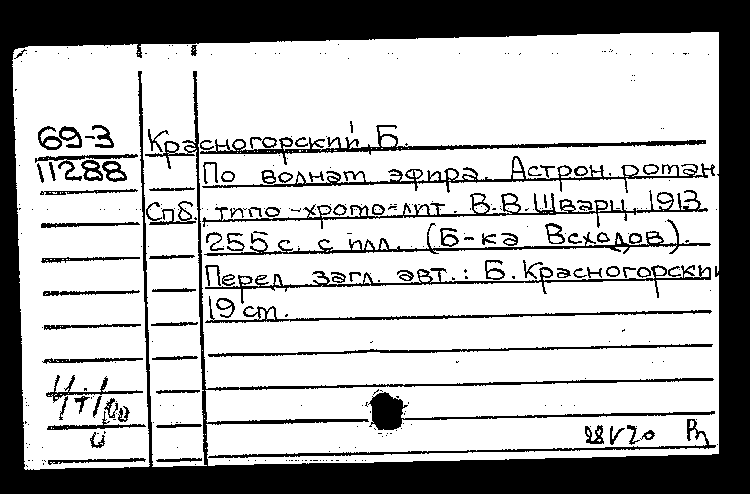 69-3 Красногорский, Б.
11288 По волнам эфира. Астрон. роман.
Спб, типо-хромо-лит. В.В.Шварц, 1913
255 с. с илл. (Б-ка Всходов).
Перед загл. авт.: Б. Красногорский
19 cm.
28 V 70